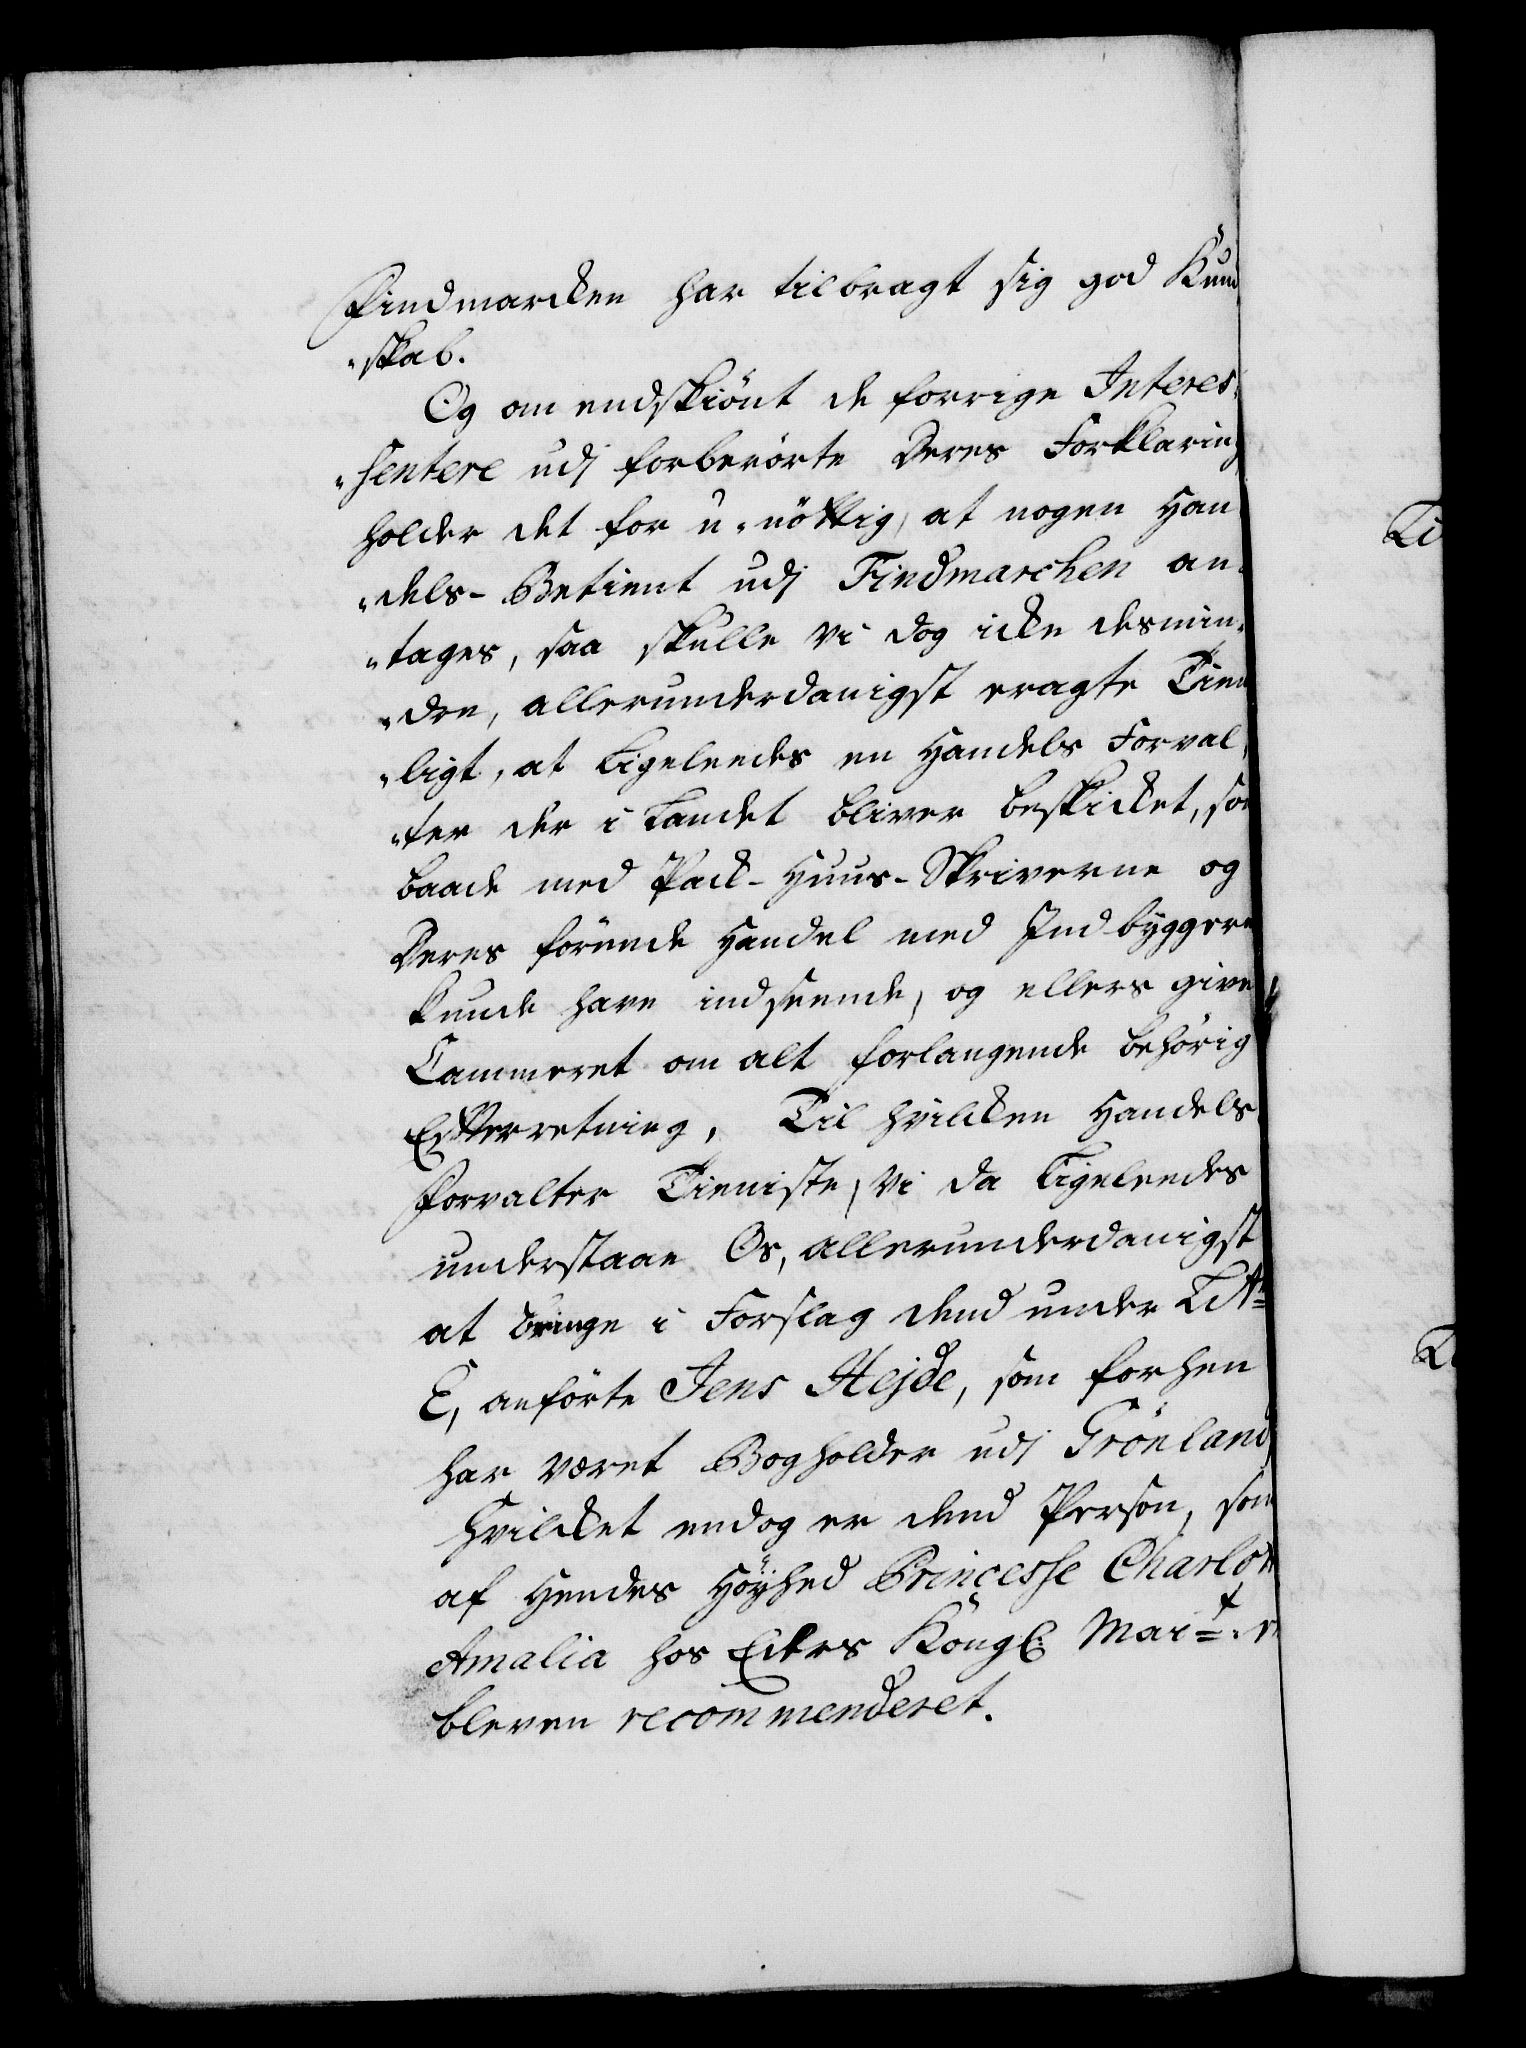 Findmarcken har tilbragt sig god Kund
"skab.
Og om endskiönt de forrige Interes"
"sentere udj forberörte Deres Forklaring
holder det for u-nöttig, at nogen Han
"dels-Betient udj Findmarchen an"
"tages, saa skulle vi dog icke desmin"
"dre, allerunderdanigst eragte Tien
"ligt, at Ligeleedes en Handels Forval"
"ter der i Landet bliver beskicket, som
baade med Pack-Huus-Skriverne og
Deres förende Handel med Indbyggere
kunde have indseende, og ellers give
Cammeret om alt forlangende behörig
Efterretning, Til hvilcken Handels
Forvalter Tieniste, Vi da Ligeleedes
understaae Os, allerunderdanigst
at bringe i Forslag dend under Litr=
E, anförte Jens Hejde, som forhen
har været Bogholder udj Grönland
Hvilcket endog er dend Person, som
af Hendes Höyhed Princesse Charlot
Amalia hos Eders Köngl: Mait= er
bleven recommenderet.